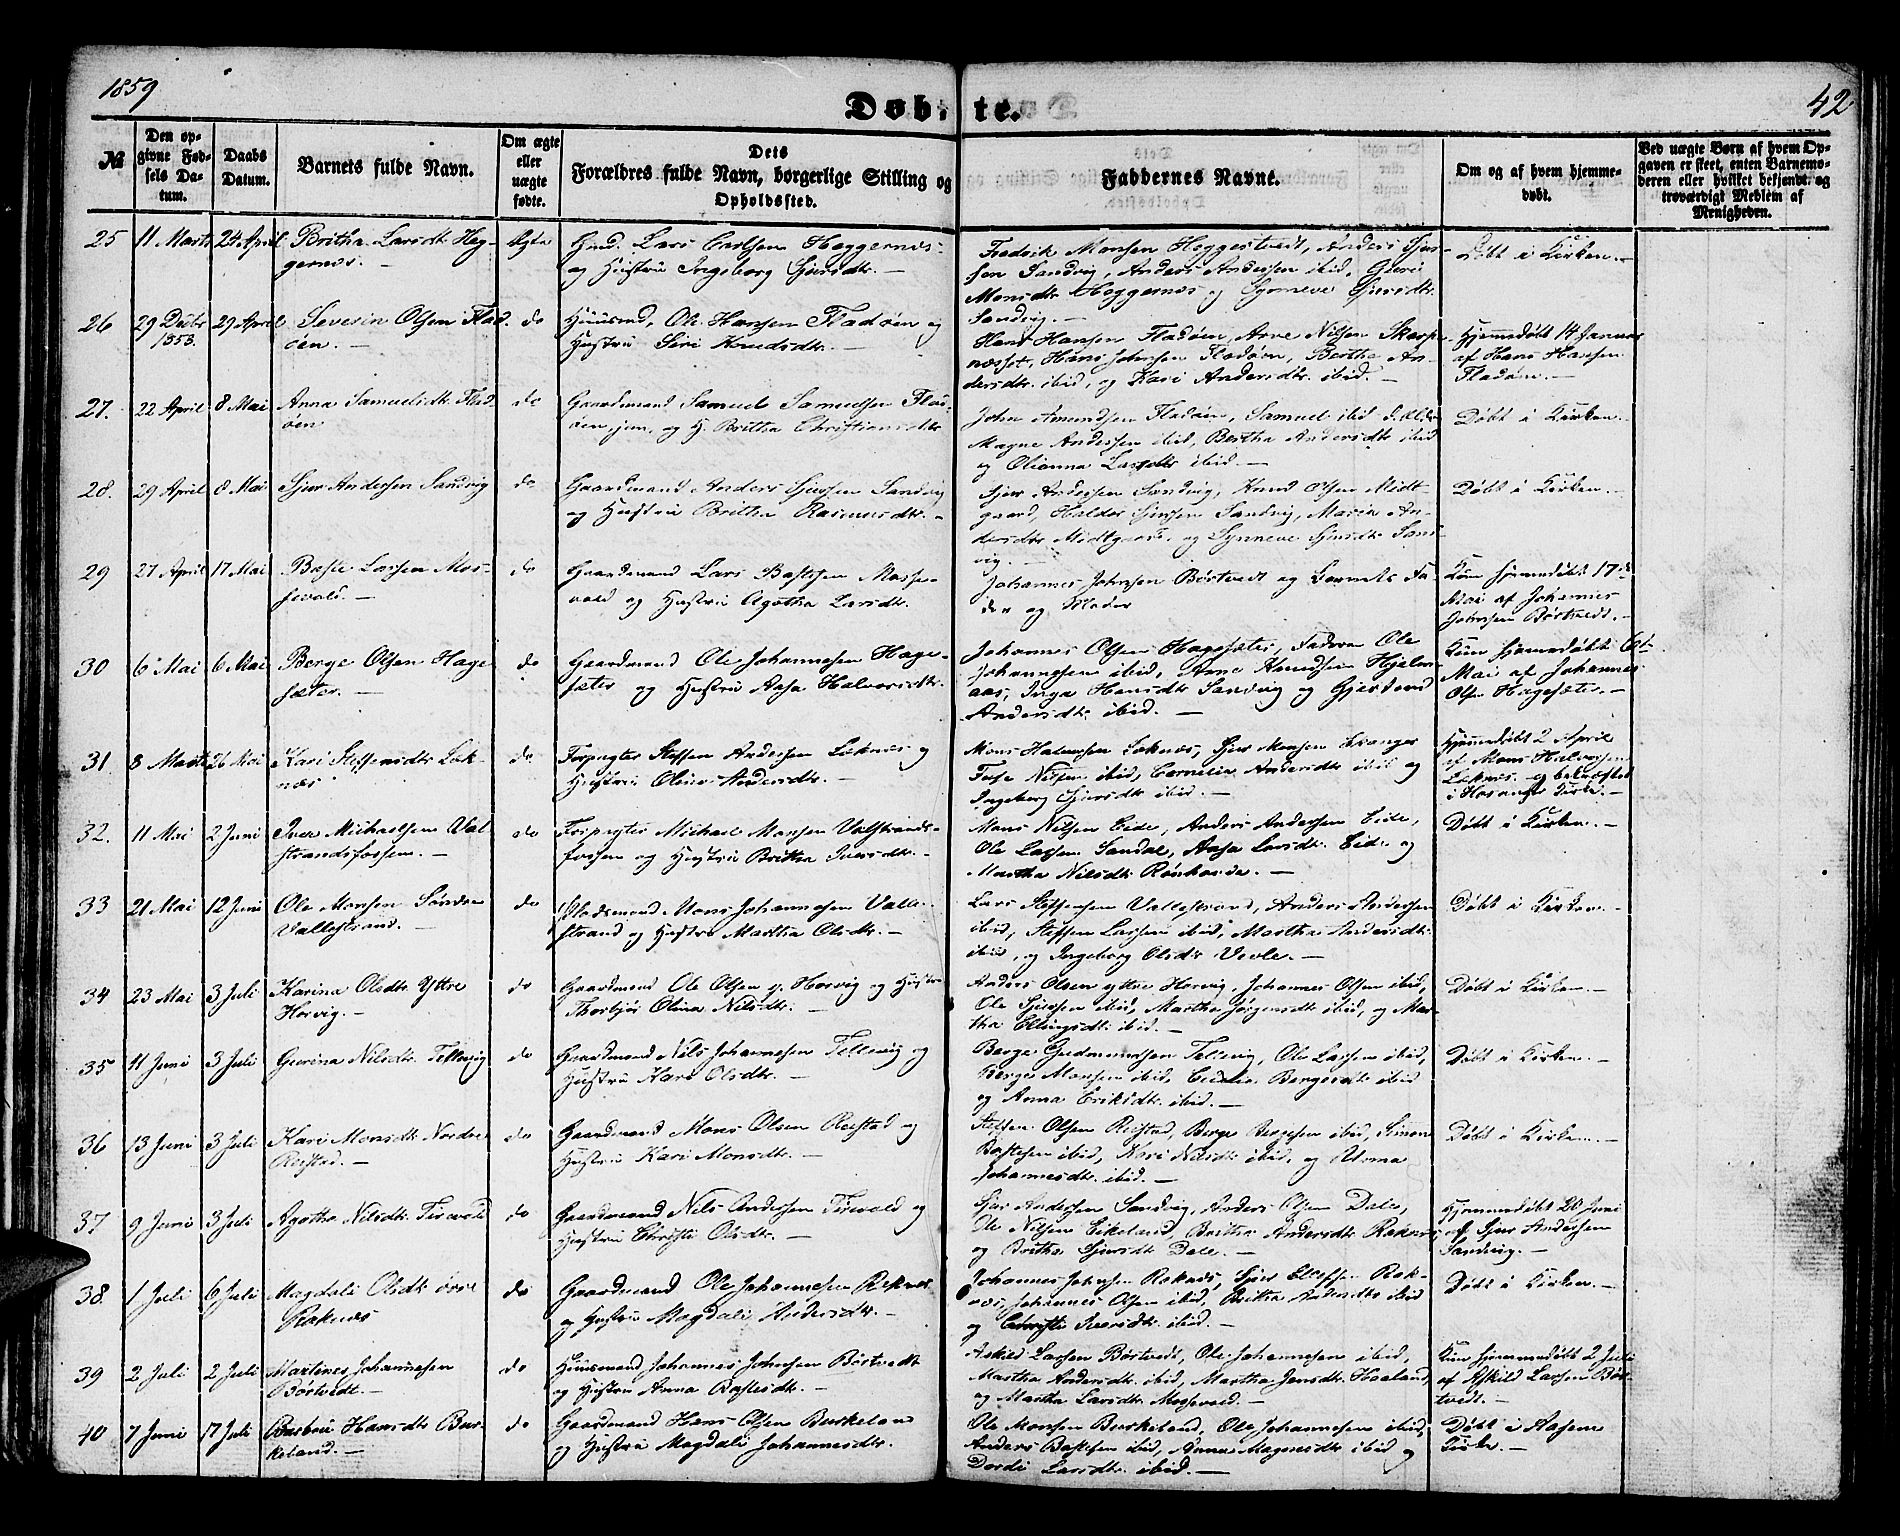 1859
Døbte.
42
№
Den op-
givne Fød-
sels Da-
tum.
Daabs
Datum.
Barnets fulde Navn.
Om ægte
eller
uægte
fødte.
Dets
Forældres fulde Navn, borgerlige Stilling og
Opholdssted.
Faddernes Navne.
Om og af hvem hjemme-
døbt.
Ved uægte Børn af hvem Op-
gaven er skeet, enten Barnemo-
deren eller hvilket bekjendt og
troværdigt Medlem af
Menigheden.
25 11 Marts 24 April Britha Larsdt. Hog-
gernes. —
Ægte
Gmd. Lars Carlsen Hoggernæs
og Hustru Ingeborg Sjursdtr. —
Fredrik Monsen Heggestvedt, Anders Sjur-
sen Sandvig, Anders Andersen ibid, Guri
Monsdtr. Hoggernes og Synneve Sjursdtr.
Sandvig. —
Døbt i Kirken. —
26 29 Decbr 1858. 29 April Severin Olsen Flad-
øen. —
do
Huusmd. Ole Hansen Fladøen og
Hustru Siri Knudsdtr. —
Hans Hansen Fladøen, Arne Nilsen Skarp-
næsset, Hans Johnsen Fladøen, Bertha An-
dersdtr. ibid, og Kari Andersdtr. ibid. —
Hjemmedøbt 14 Januar
af Hans Hansen
Fladøen. —
27. 22 April 8 Mai Anna Samuelsdtr. Flad-
øen
do
Gaardmand Samuel Samuelsen Flad-
øen, jun, og H. Brittha Christiansdtr
John Amundsen Fladøen, Samuel ibid d. Ældre
Magne Andersen ibid, Bertha Andersdtr ibid
og Olianna Larsdtr ibid. —
Døbt i Kirken. —
28. 29 April 8 Mai Sjur Andersen Sandvig
do
Gaardmand Anders Sjursen Sandvig
og Hustru Brittha Rasmusdtr. —
Sjur Andersen Sandvig, Knud Olsen Midt-
gaard, Haldor Sjursen Sandvig, Maria An-
dersdtr Midtgaard, og Synneve Sjursdtr Sand-
vig. —
Døbt i Kirken. —
29 27 April 17 Mai Baste Larsen Mos-
sevold. —
do
Gaardmand Lars Bastesen Mosse-
vold og Hustru Agatha Larsdtr.
Johannes Johnsen Børtvedt og Barnets Fa-
der og Moder
Kun hjemmedøbt 17de
Mai af Johannes
Johnsen Børtvedt. —
30 6 Mai 6 Mai Berge Olsen Hage-
sæter. —
do
Gaardmand Ole Johannesen Hage-
sæter og Hustru Aasa Halvorsdtr.
Johannes Olsen Hagesæter, Faderen Ole
Johannesen ibid, Arne Knudsen Hjelm-
aas, Inga Hansdtr Sandvig og Gjertrud
Andersdtr ibid. —
Kun hjemmedøbt 6te
Mai af Johannes
Olsen Hagesæter. —
31. 8 Marts 26 Mai Kari Steffensdtr Løk-
næs
do
Forpagter Steffen Andersen Løknæs og
Hustru Oline Andersdtr. —
Mons Halvorsen Løknæs, Sjur Monsen Evanger
Nilsen ibid, Cornelia Andersdtr ibid og
Ingeborg Sjursdtr ibid. —
Hjemmedøbt 2 April
af Mons Halvorsen
Løknæs og bekræftet
i Hosanger Kirke. —
32. 11 Mai 2 Juni Iver Michaelsen Val-
strandsfossen. —
do
Forpagter Michael Monsen Valstrands-
fossen og Hustru Brittha Iversdtr. —
Mons Nilsen Eide, Anders Andersen Eide,
Ole Larsen Sandal, Aasa Larsdtr. Eide og
Martha Nilsdtr Rønhovde. —
Døbt i Kirken. —
33 21 Mai 12 Juni Ole Monsen Søndre
Vallestrand. —
do
Pladsmand Mons Johannesen Valle-
strand og Hustru Martha Olsdtr. —
Lars Steffensen Vallestrand, Anders Andersen
ibid, Steffen Larsen ibid, Martha Andersdtr.
ibid, og Ingeborg Olsdtr Veole. —
Døbt i Kirken. —
34 23 Mai 3 Juli Karina Olsdtr Yttre
Horvig. —
do
Gaardmand Ole Olsen y. Horvig og Hustru
Thorbjør Olina Nilsdtr. —
Anders Olsen yttre Horvig, Johannes Olsen ibid,
Ole Sjursen ibid, Martha Jørgensdtr ibid, og Mar-
tha Ellingsdtr ibid. —
Døbt i Kirken. —
35 11 Juni 3 Juli Gurina Nilsdtr. Tellevig
do
Gaardmand Nils Johannesen Tellevig og
Hustru Kari Olsdtr. —
Berge Gudmundsen Tellevig, Ole Larsen ibid,
Berge Monsen ibid, Cecelia Bergesdtr ibid
og Anna Eriksdtr. ibid. —
Døbt i Kirken. —
36 13 Juni 3 Juli Kari Monsdtr Nordre
Reistad. —
do
Gaardmand Mons Olsen Reistad og
Hustru Kari Monsdtr. —
Steffen Olsen Reistad, Berge Bergesen ibid, Simon
Bastesen ibid, Kari Nilsdtr ibid, og Anna
Johannesdtr. ibid. —
Døbt i Kirken. —
37 9 Juni 3 Juli Agatha Nilsdtr. Tirevold
do
Gaardmand Nils Andersen Tirevold og
Hustru Christi Olsdtr. —
Sjur Andersen Sandvig, Anders Olsen Dale,
Ole Nilsen Eikeland, Britha Andersdtr. Raknæs
og Britha Sjursdtr Dale. —
Hjemmedøbt 20 Juni
af Sjur Andersen
Sandvig. —
38. 1 Juli 6 Juli Magdali Olsdtr øvre
Raknæs
do
Gaardmand Ole Johannesen Raknæs
og Hustru Magdali Andersdtr. —
Johannes Johnsen Raknæs, Sjur Rak-
næs, Johannes Olsen ibid, Brittha Andersdtr ibid
og Christi Iversdtr. ibid. —
Døbt i Kirken. —
39 2 Juli 2 Juli Martines Johannesen
Børtvedt. —
do
Huusmand Johannes Johnsen Børtvedt
og Hustru Anna Bastesdtr. —
Askild Larsen Børtvedt, Ole Johannesen ibid,
Martha Andersdtr ibid, Martha Jensdtr. Haaland,
og Martha Larsdtr. Mossevold. —
Kun hjemmedøbt 2 Juli
af Askild Larsen Bør-
tvedt. —
40 7 Juni 17 Juli Barbru Hansdtr Bur-
keland. —
do
Gaardmand Hans Olsen Burkeland
og Hustru Magdali Johannesdtr.
Ole Monsen Burkeland, Ole Johannesen ibid,
Anders Bastesen ibid, Anna Magnesdtr ibid og
Dordi Larsdtr. ibid. —
Døbt i Aasene
Kirke. —